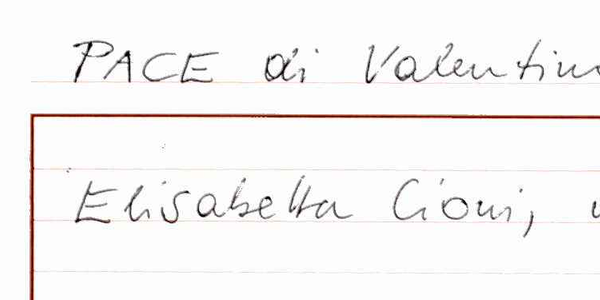 PACE di Valentin
Elisabetta Cioni,